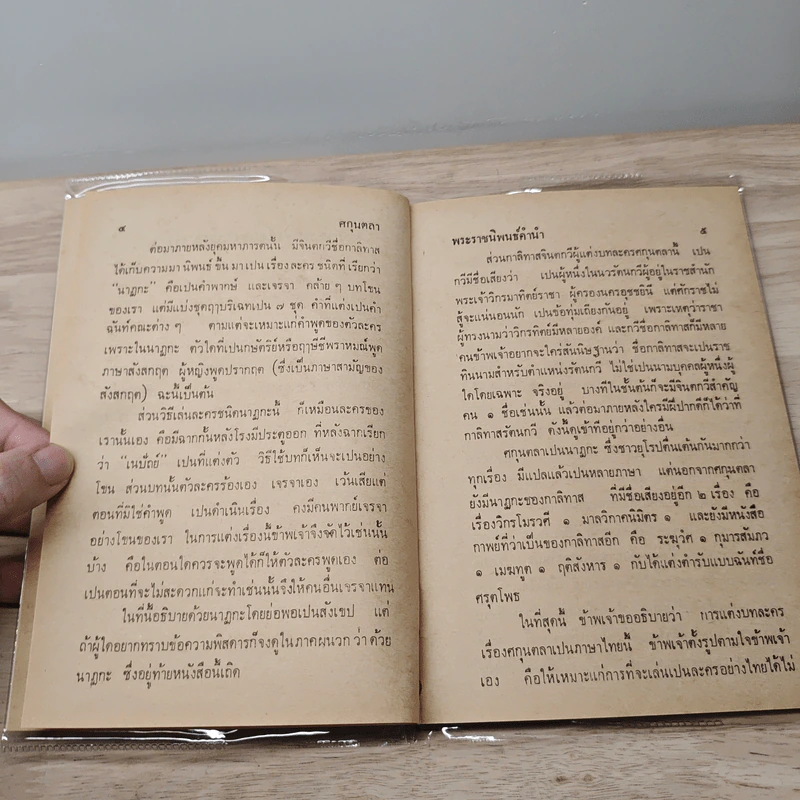 ๔ ศกุนตลา
ต่อมาภายหลังยุคมหาภารตนั้น มีจินตกวีชื่อกาลิทาส
ได้เก็บความมานิพนธ์ขึ้นมาเปนเรื่องละครชนิดที่เรียกว่า
“นาฏกะ” คือเปนคำพากย์ และเจรจา คล้าย ๆ บทโขน
ของเรา แต่มีแบ่งชุดฤาบริเฉทเปน ๗ ชุด คำที่แต่งเปนคำ
ฉันท์คณะต่าง ๆ ตามแต่จะเหมาะแก่คำพูดของตัวละคร
เพราะในนาฏกะ ตัวใดที่เปนกษัตริย์หรือฤๅษีชีพราหมณ์พูด
ภาษาสังสกฤต ผู้หญิงพูดปรากฤต (ซึ่งเปนภาษาสามัญของ
สังสกฤต) ฉะนี้เปนต้น
ส่วนวิธีเล่นละครชนิดนาฏกะนี้ ก็เหมือนละครของ
เรานั้นเอง คือมีฉากกั้นหลังโรงมีประตูออก ที่หลังฉากเรียก
ว่า “เนปัถย์” เปนที่แต่งตัว วิธีใช้บทก็เห็นจะเปนอย่าง
โขน ส่วนบทนั้นตัวละครร้องเอง เจรจาเอง เว้นเสียแต่
ตอนที่มิใช่คำพูด เปนดำเนินเรื่อง คงมีคนพากย์เจรจา
อย่างโขนของเรา ในการแต่งเรื่องนี้ข้าพเจ้าจึงจัดไว้เช่นนั้น
บ้าง คือในตอนใดควรจะพูดได้ก็ให้ตัวละครพูดเอง ต่อ
เปนตอนที่จะไม่สะดวกแก่จะทำเช่นนั้นจึงให้คนอื่นเจรจาแทน
ในที่นี้อธิบายด้วยนาฏกะโดยย่อพอเปนสังเขป แต่
ถ้าผู้ใดอยากทราบข้อความพิสดารก็จงดูในภาคผนวก ว่าด้วย
นาฏกะ ซึ่งอยู่ท้ายหนังสือนี้เถิด
พระราชนิพนธ์คำนำ ๕
ส่วนกาลิทาสจินตกวีผู้แต่งบทละครศกุนตลานี้ เปน
กวีมีชื่อเสียงว่า เปนผู้หนึ่งในนวรัตนกวีผู้อยู่ในราชสำนัก
พระเจ้าวิกรมาทิตย์ราชา ผู้ครองนครอุชชยินี แต่ศักราชไม่
สู้จะแน่นอนนัก เปนข้อทุ่มเถียงกันอยู่ เพราะเหตุว่าราชา
ผู้ทรงนามว่าวิกรทิตย์มีหลายองค์ และกวีชื่อกาลิทาสก็มีหลาย
คนข้าพเจ้าอยากจะใคร่สันนิษฐานว่า ชื่อกาลิทาสจะเปนราช
ทินนามสำหรับตำแหน่งรัตนกวี ไม่ใช่เปนนามบุคคลผู้หนึ่งผู้
ใดโดยเฉพาะ จริงอยู่ บางทีในชั้นต้นก็จะมีจินตกวีสำคัญ
คน ๑ ชื่อเช่นนั้น แล้วต่อมาภายหลังใครมีฝีปากดีก็ได้ว่าที่
กาลิทาสรัตนกวี ดังนี้ดูเข้าทีอยู่กว่าอย่างอื่น
ศกุนตลาเปนนาฏกะ ซึ่งชาวยุโรปตื่นเต้นกันมากกว่า
ทุกเรื่อง มีแปลแล้วเปนหลายภาษา แต่นอกจากศกุนตลา
ยังมีนาฏกะของกาลิทาส ที่มีชื่อเสียงอยู่อีก ๒ เรื่อง คือ
เรื่องวิกรโมรวศี ๑ มาลวิกาคนิมิตร ๑ และยังมีหนังสือ
กาพย์ที่ว่าเปนของกาลิทาสอีก คือ ระฆุวํศ ๑ กุมารสัมภว
๑ เมฆทูต ๑ ฤติสังหาร ๑ กับได้แต่งตำรับแบบฉันท์ชื่อ
ศรุตโพธ
ในที่สุดนี้ ข้าพเจ้าขออธิบายว่า การแต่งบทละคร
เรื่องศกุนตลาเปนภาษาไทยนี้ ข้าพเจ้าตั้งรูปตามใจข้าพเจ้า
เอง คือให้เหมาะแก่การที่จะเล่นเปนละครอย่างไทยได้ไม่